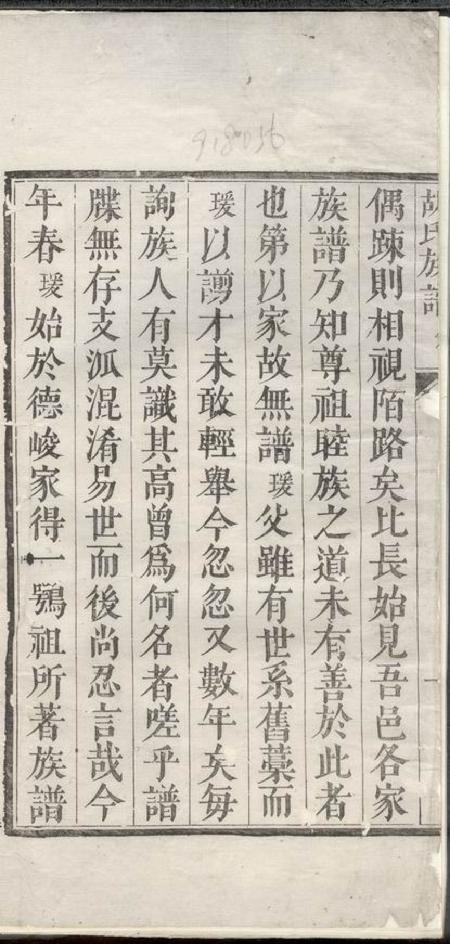 918056
胡氏族譜
一
偶踈則相視陌路矣比長始見吾邑各家
族譜乃知尊祖睦族之道未有善於此者
也第以家故無譜瑗父雖有世系舊藁而
瑗以謭才未敢輕舉今忽忽又數年矣每
詢族人有莫識其高曾為何名者嗟乎譜
牒無存支派混淆易世而後尚忍言哉今
年春瑗始於德峻家得一鶚祖所著族譜